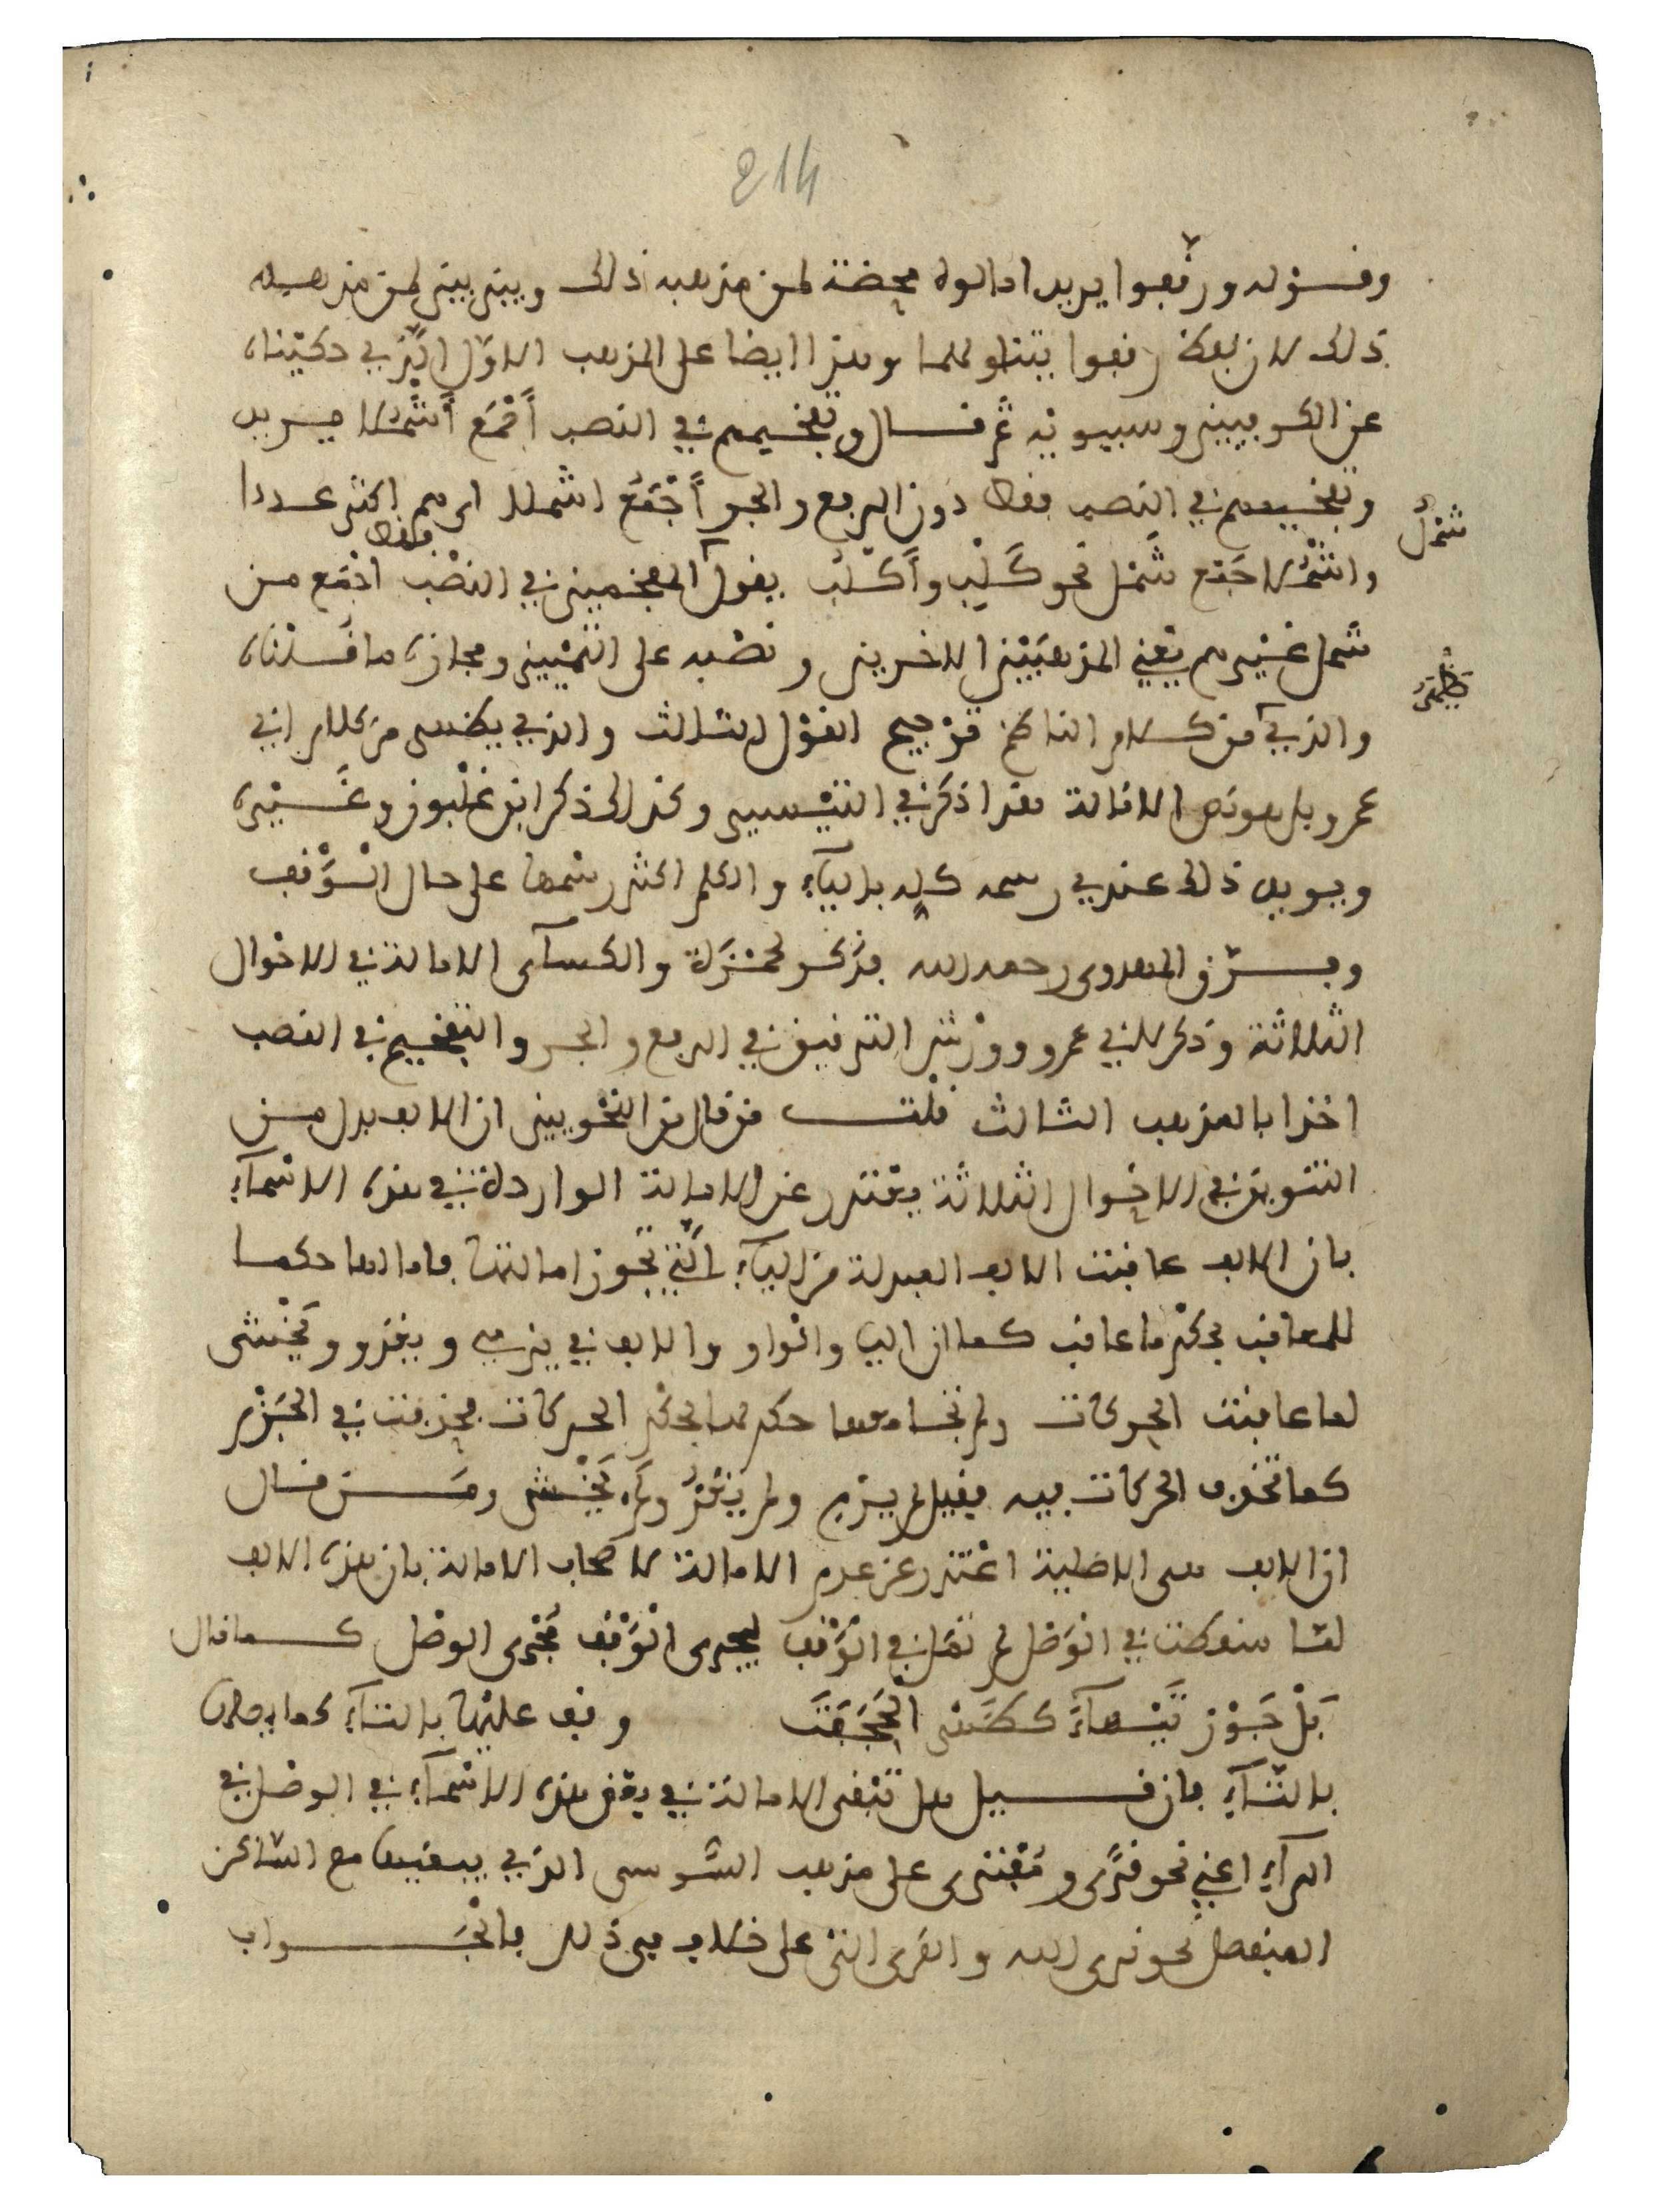 214
وقوله ورققوا يريد امالوه محضة لمن مذهبه ذلك وبين بين لمن مذهبه
ذلك لان لفظ رققوا يتناولهما وهذا ايضا على المذهب الاوّل الذي حكيناه
عن الكوفيين وسيبويه ثم قال وتفخيمهم في النصب أجمع أشملا يريد
وتفخيمهم في النصب فقط دون الرفع والجر أجمع اشملا اي هم اكثر عددا
واشملا جمع شمل نحو كلب وأكلب يقول المفخمين في النصب فقط اجمع من
شمل
شملا غيرهم يعني المذهبين الاخرين ونصبه على التمييز ومجازه ما قلناه
والذي من كلام الناظم ترجيح القول الثالث والذي يظهر من كلام ابي
يظهر
عمرو بل هو نص الامالة هذا ذكر في التيسير وكذلك ذكر ابن غلبون وغيره
ويويد ذلك عندي رسمه كله بالياء والكلم اكثر رسمها على حال الوقف
وفرّق المهدوي رحمه الله فذكر لحمزة والكسآى الامالة في الاحوال
الثلاثة وذكر لابي عمرو وورش الترقيق في الرفع والجر والتفخيم في النصب
اخذا بالمذهب الثالث قلت من قال من النحويين ان الالف بدل من
التنوين في الاحوال الثلاثة يعتذر عن الامالة الواردة في هذه الاسمآء
بان الالف عاقبت الالف المبدلة من اليآء الّتي تجوز امالتها فامالها حكما
للمعاقب بحكم ما عاقب كما ان اليا والواو والالف في يرمي ويغزو ويخشى
لما عاقبت الحركات ولم تجامعها حكم لها بحكم الحركات فحذفت في الجزم
كما تحذف الحركات فيه فقيل لم يرم ولم يغز ولم يخش ومن قال
ان الالف هي الاصلية اعتذر عن عدم الامالة لاصحاب الامالة بان هذه الالف
لمّا سقطت في الوصل لم تمل في الوقف ليجرى الوقف مجرى الوصل كما قال
بل جوز تيهآء كظهر الحجفت وقف عليها بالتآء كما يصلها
بالتآء فان قيل هل تبقى الامالة في بعض هذه الاسمآء في الوصل في
الرآء اعني نحو قرى ومفترى على مذهب السّوسى الذي يبقيها مع السّاكن
المنفصل نحو نرى الله والقرى التي على خلاف في ذلك فالجواب